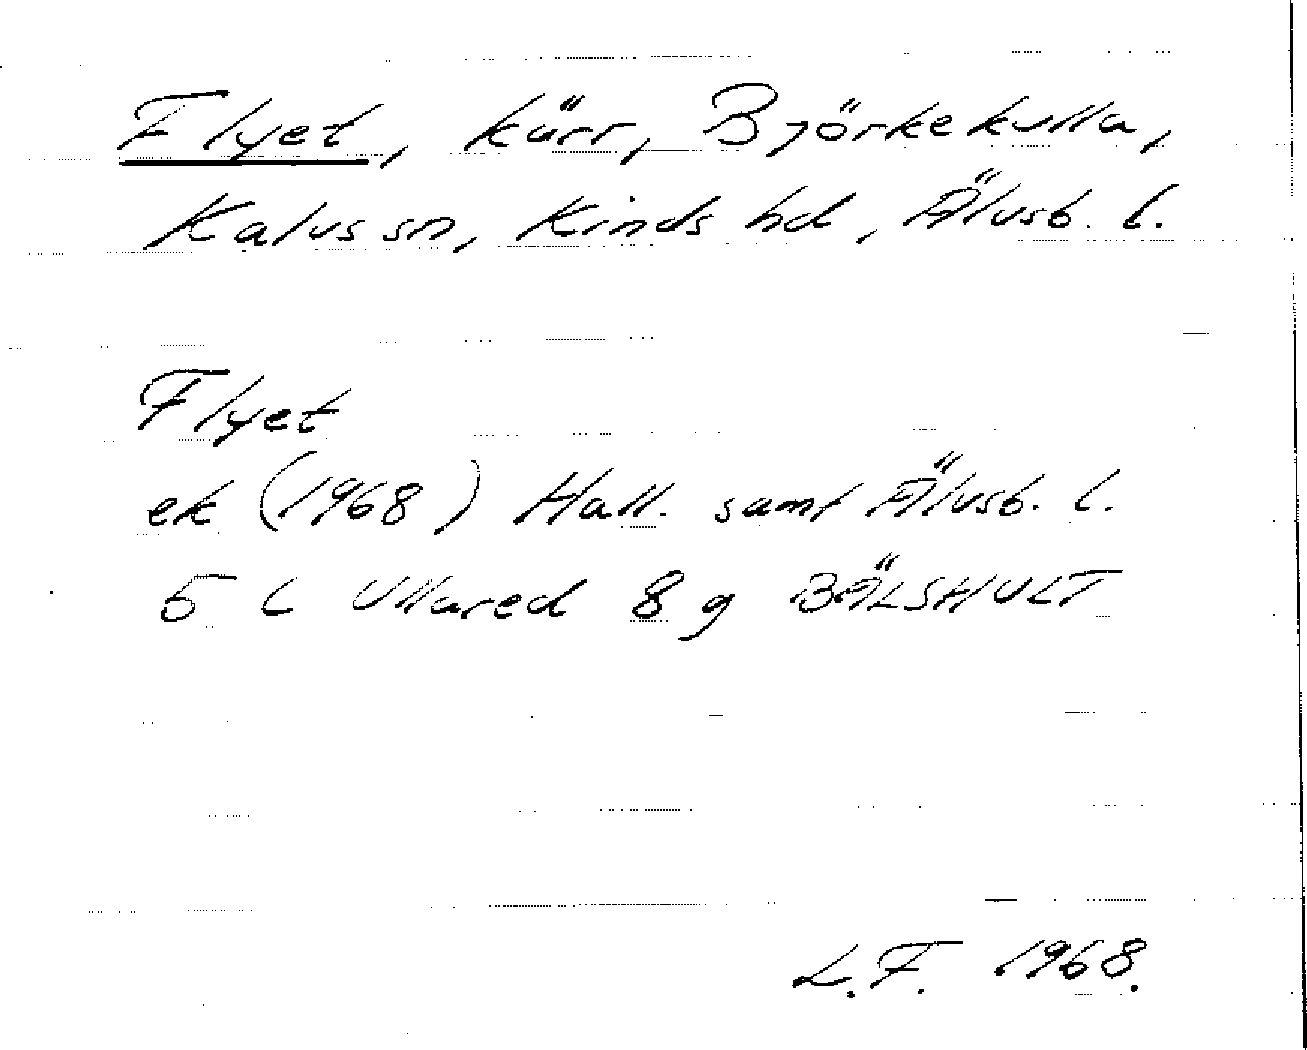 Flyet, kärr, Björkekulla,
Kalvs sn, Kinds hd, Älvsb. l.
Flyet
ek (1968) Hall. samt Älvsb. l.
5 C Ullared 8 g BÄLSHULT
L.F. 1968.